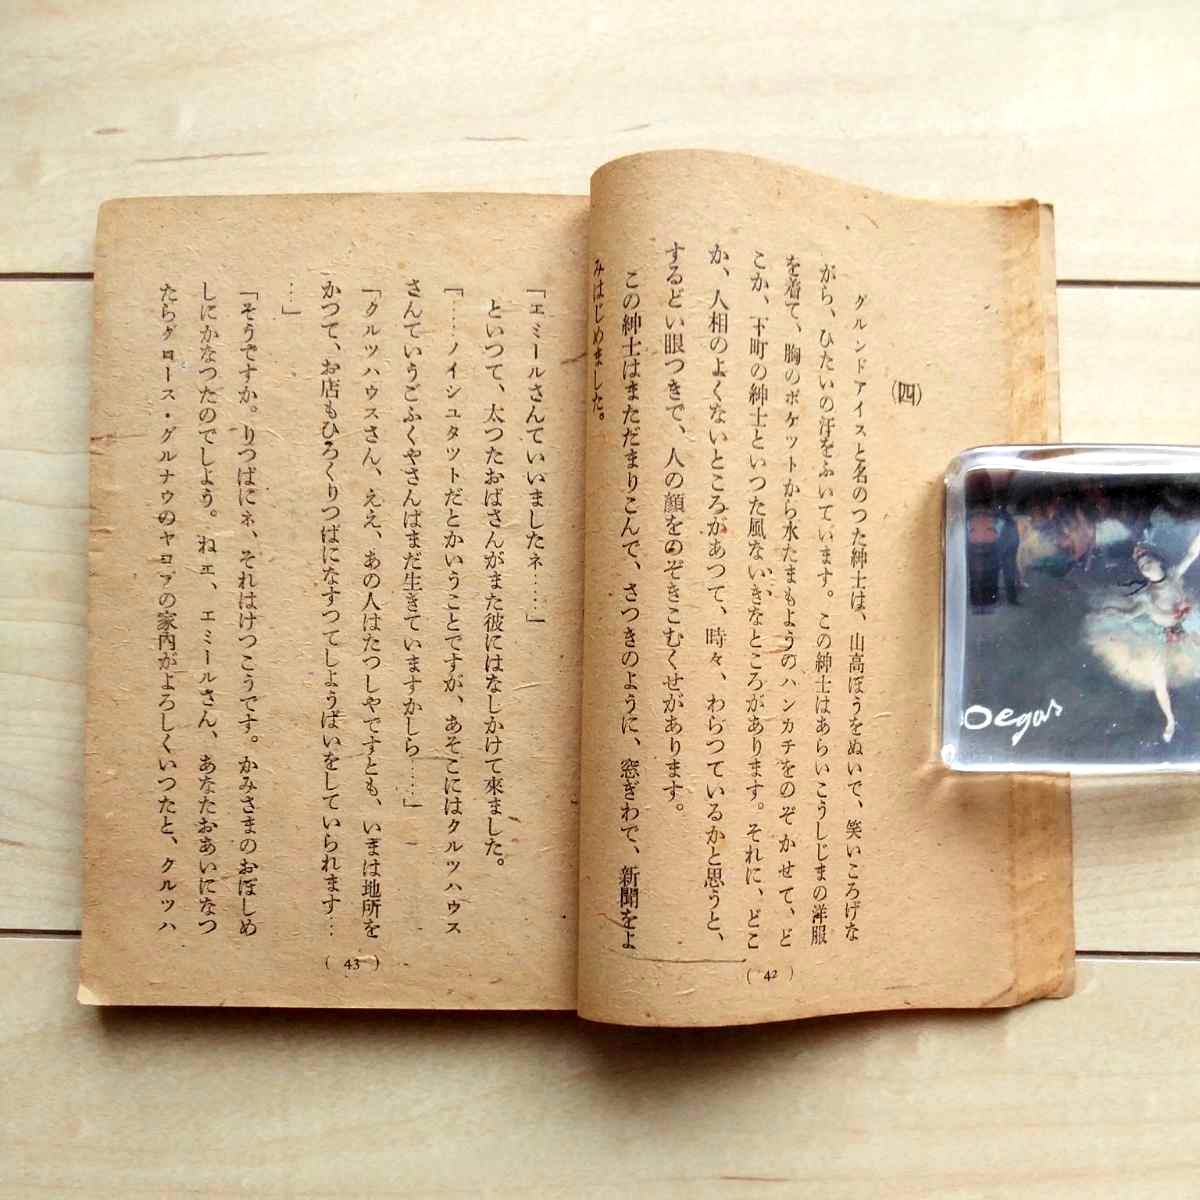 (四)
グルンドアイスと名のつた紳士は、山高ぼうをぬいで、笑いころげな
がら、ひたいの汗をふいています。この紳士はあらいこうしじまの洋服
を着て、胸のポケツトから水たまもようのハンカチをのぞかせて、ど
こか、下町の紳士といつた風ないきなところがあります。それに、どこ
か、人相のよくないところがあつて、時々、わらつているかと思うと、
するどい眼つきで、人の顔をのぞきこむくせがあります。
この紳士はまただまりこんで、さつきのように、窓ぎわで、新聞をよ
みはじめました。
(42)
「エミールさんていいましたネ……」
といつて、太つたおばさんがまた彼にはなしかけて來ました。
「……ノイシユタツトだとかいうことですが、あそこにはクルツハウス
さんていうごふくやさんはまだ生きていますかしら……」
「クルツハウスさん、ええ、あの人はたつしやですとも、いまは地所を
かつて、お店もひろくりつぱになすつてしようばいをしていられます…
…」
「そうですか。りつぱにネ、それはけつこうです。かみさまのおぼしめ
しにかなつたのでしよう。ねエ、エミールさん、あなたおあいになつ
たらグロース・グルナウのヤコブの家内がよろしくいつたと、クルツハ
(43)
Degas